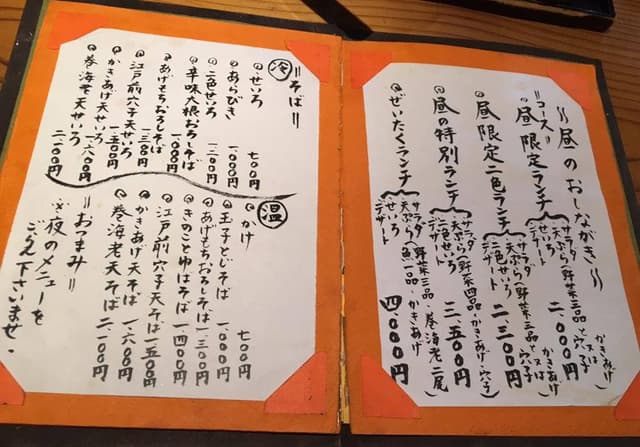 〜昼のおしながき〜
=コース=
昼限定ランチ
サラダ
天ぷら(野菜三品と穴子又はかきあげ)
せいろ
デザート
二、000円
昼限定二色ランチ
サラダ
天ぷら(野菜三品と穴子又はかきあげ)
二色せいろ
デザート
二、三00円
昼の特別ランチ
サラダ
天ぷら(野菜四品・かきあげ・穴子)
二色せいろ
デザート
二、五00円
ぜいたくランチ
サラダ
天ぷら(野菜三品 巻海老二尾 魚一品・かきあげ)
せいろ
デザート
四、000円
=そば=
冷
せいろ 七00円
あらびき 一、000円
二色せいろ 一、三00円
辛味大根おろしそば 一、000円
あげもちおろしそば 一、三00円
江戸前穴子天せいろ 一、五00円
かきあげ天せいろ 一、六00円
巻海老天せいろ 二、一00円
温
かけ 七00円
玉子とじそば 一、000円
あげもちおろしそば 一、三00円
きのことゆばそば 一、四00円
江戸前穴子天そば 一、五00円
かきあげ天そば 一、六00円
巻海老天そば 二、一00円
=おつまみ=
※夜のメニューを
ごらん下さいませ。